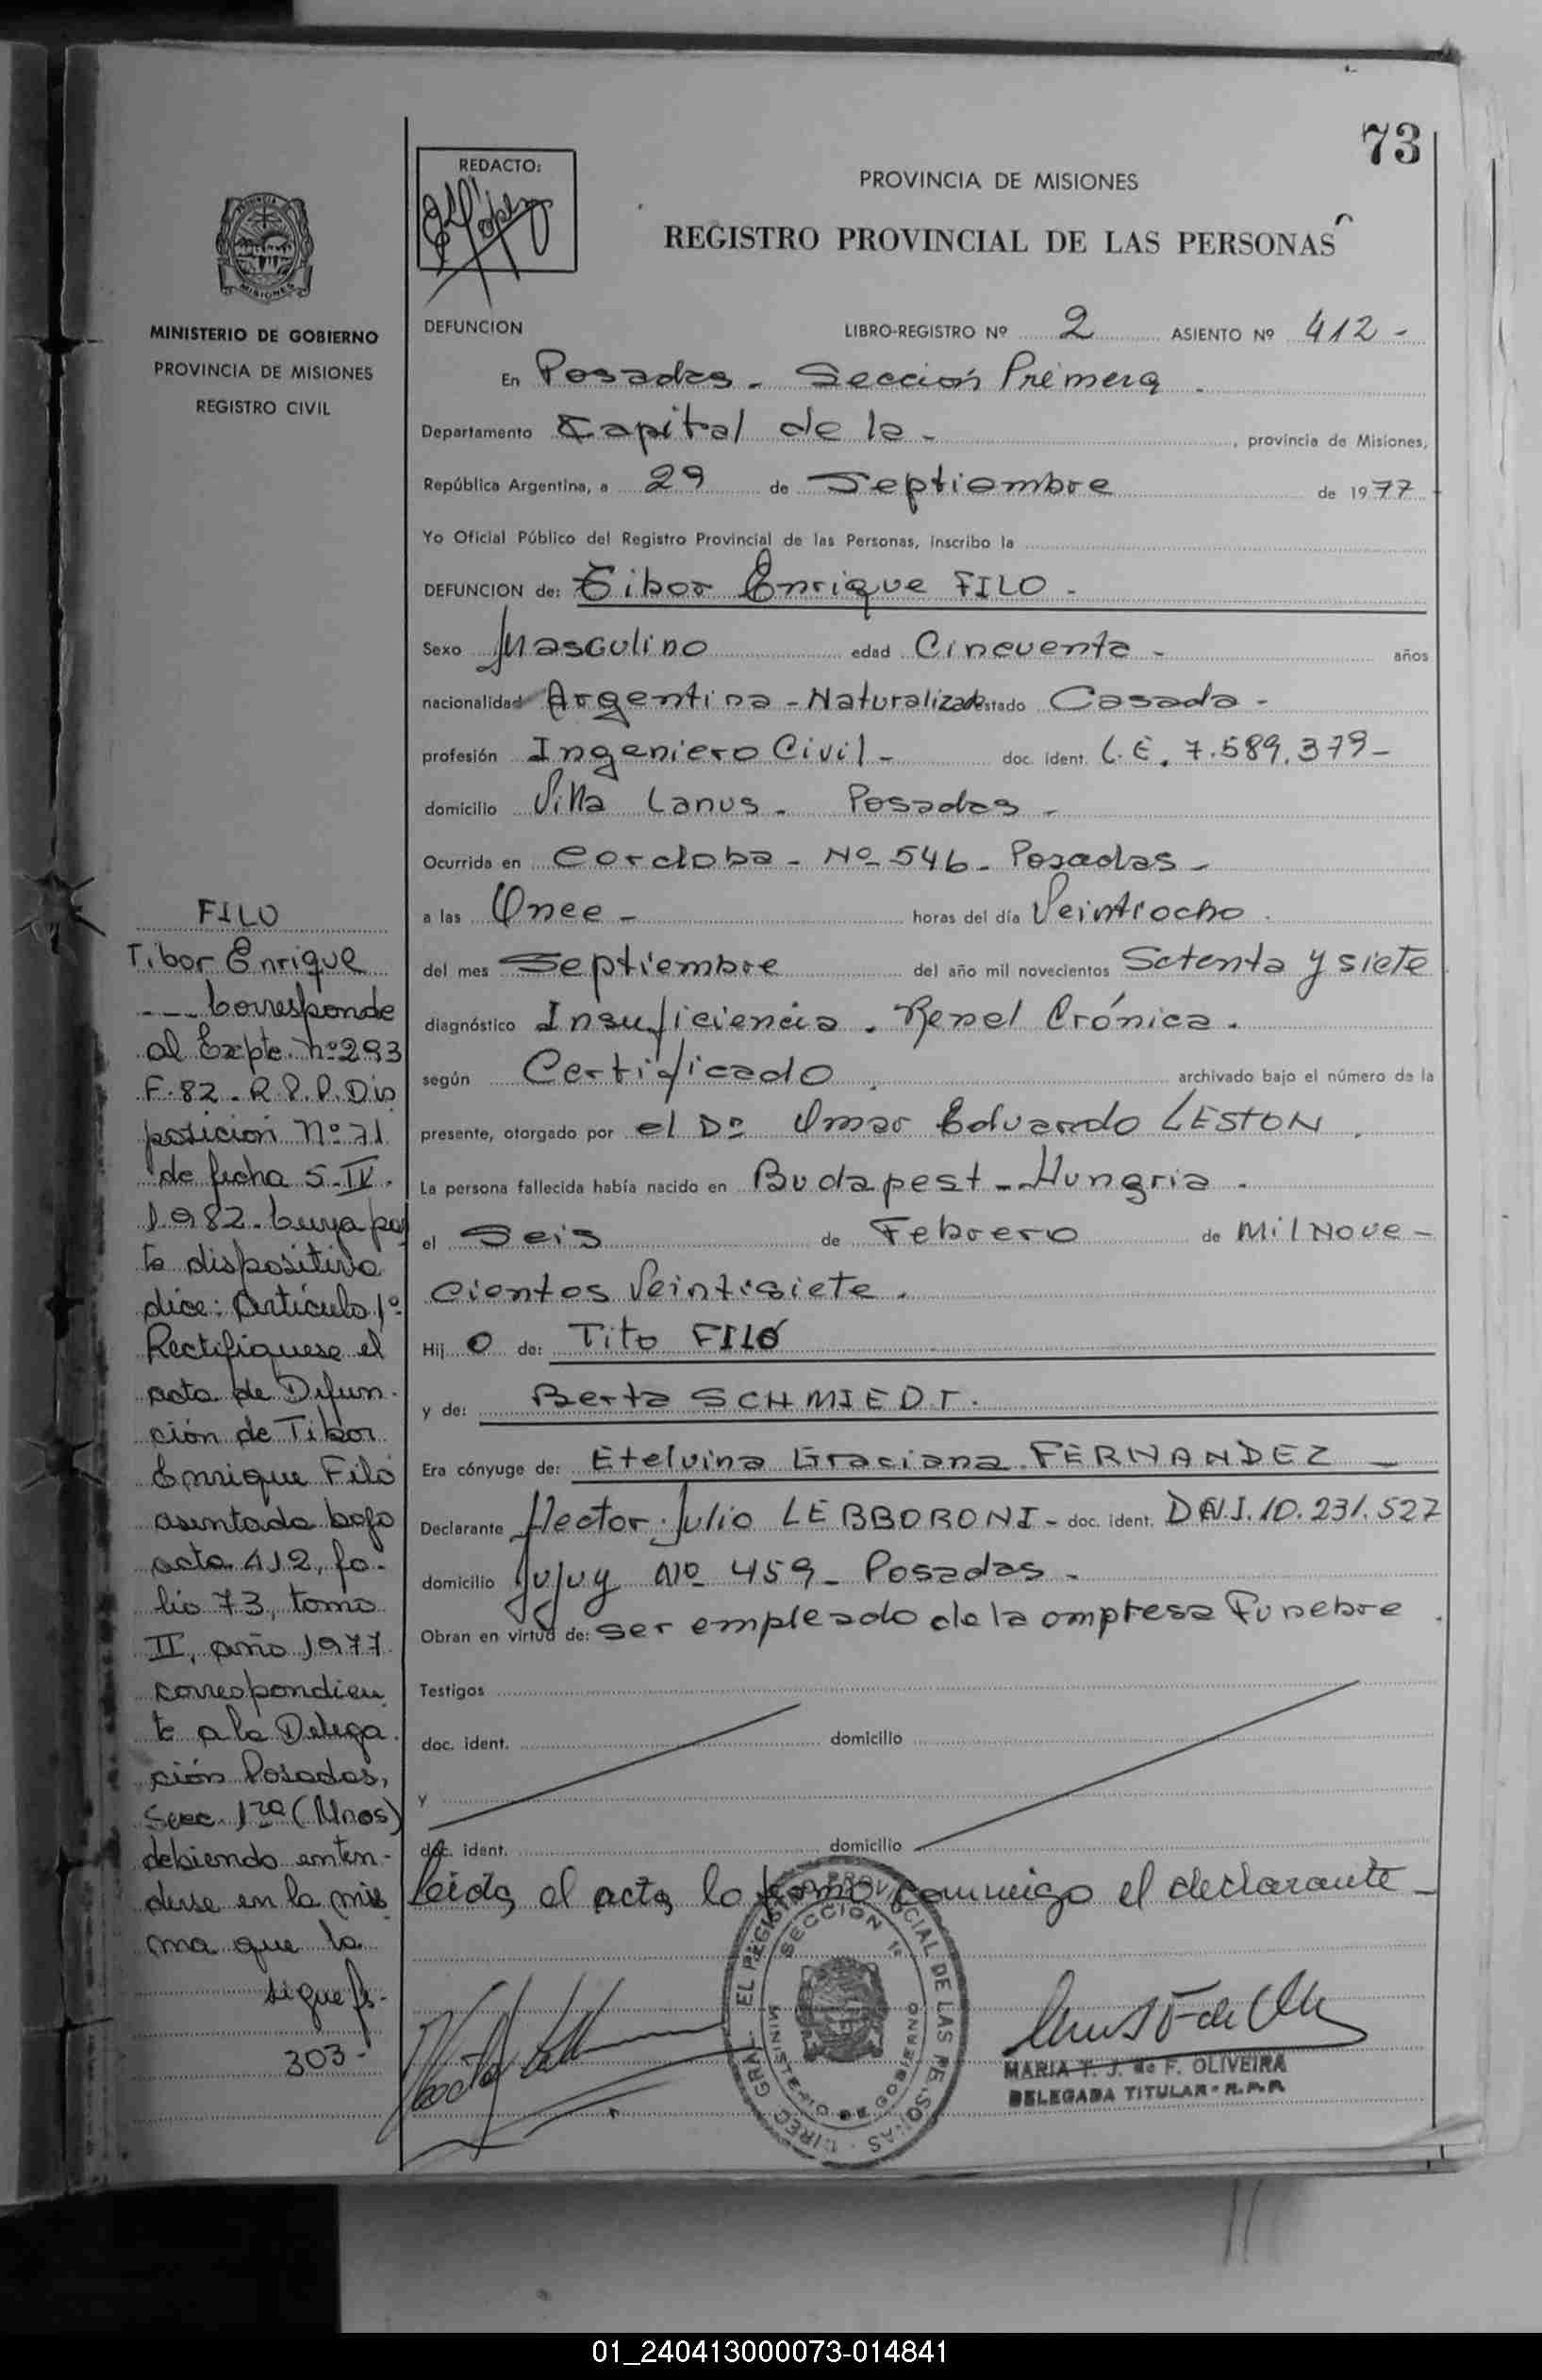 73
REDACTO:
PROVINCIA DE MISIONES
REGISTRO PROVINCIAL DE LAS PERSONAS
MISIONES
MINISTERIO DE GOBIERNO
PROVINCIA DE MISIONES
REGISTRO CIVIL
DEFUNCION LIBRO-REGISTRO Nº 2 ASIENTO Nº 412 -
En Posadas - Sección Primera.
Departamento Capital de la - , provincia de Misiones,
República Argentina, a 29 de Septiembre de 1977
Yo Oficial Público del Registro Provincial de las Personas, inscribo la
DEFUNCION de: Tibor Enrique FILO -
Sexo Masculino edad Cincuenta - años
nacionalidad Argentina - Naturalizado estado Casado -
profesión Ingeniero Civil - doc. ident. L.E. 7.589.379 -
domicilio Villa Lanus - Posadas -
Ocurrida en Cordoba - Nº 546 - Posadas -
a las Once - horas del día Veintiocho.
del mes Septiembre del año mil novecientos Setenta y siete
diagnóstico Insuficiencia. Renal Crónica.
según Certificado. archivado bajo el número de la
presente, otorgado por el Dr Omar Eduardo LESTON.
La persona fallecida había nacido en Budapest - Hungria.
el Seis de Febrero de Mil Nove -
cientos Veintisiete.
Hij o de: Tito FILÓ
y de: Berta SCHMIEDT.
Era cónyuge de: Etelvina Graciana FERNANDEZ -
Declarante Hector Julio LEBBORONI - doc. ident. D.N.I. 10.231.527
domicilio Jujuy Nº 459 - Posadas -
Obran en virtud de: ser empleado de la empresa Funebre.
Testigos
doc. ident. domicilio
y
doc. ident. domicilio
Leida el acta la firma conmigo el declarante -
FILO
Tibor Enrique
--- Corresponde
al Expte. nº 293
F. 82 - R.P.P. Dis
posición nº 71
de fecha 5-IV.
1982 - Cuya par
te dispositiva
dice: Artículo 1º
Rectifiquese el
acta de Defun-
ción de Tibor
Enrique Filó
asentada bajo
acta 412, fo-
lio 73, tomo
II, año 1977
correspondien
te a la Delega
ción Posadas,
Secc. 1ra (Mnes)
debiendo enten-
derse en la mis
ma que la
sigue fs-
303-
DIREC. GRAL. EL REGISTRO PROVINCIAL DE LAS PERSONAS
SECCION 1ª
MINISTERIO DE GOBIERNO
MARIA T. J. de F. OLIVEIRA
DELEGADA TITULAR - R.P.P.
01_240413000073-014841